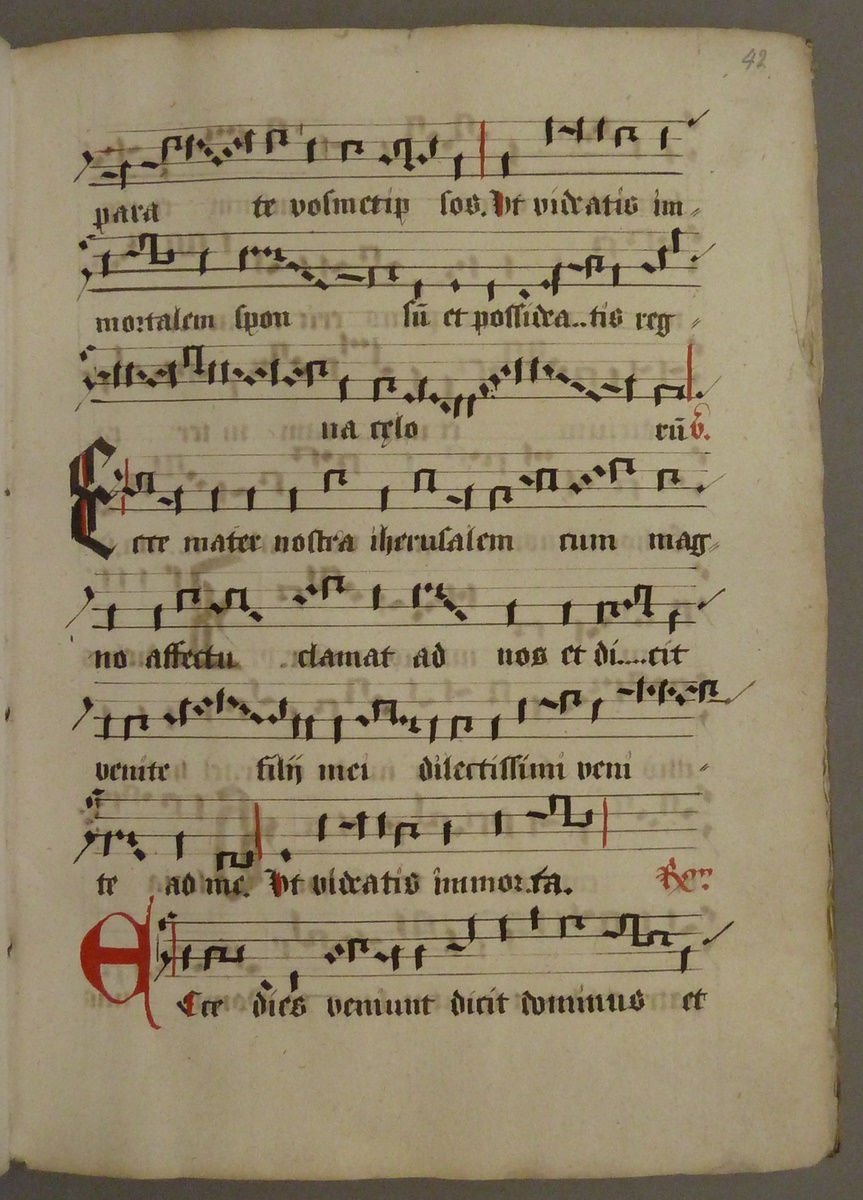 42
para te vosmetip sos. Ut videatis im-
mortalem spon sū et posside..tis reg-
na cęlo rū V.
Ecce mater nostra iherusalem cum mag-
no affectu clamat ad nos et di....cit
venite filij mei dilectissimi veni-
te ad me. Ut videatis immor.ta.
Ecce dies veniunt dicit dominus et